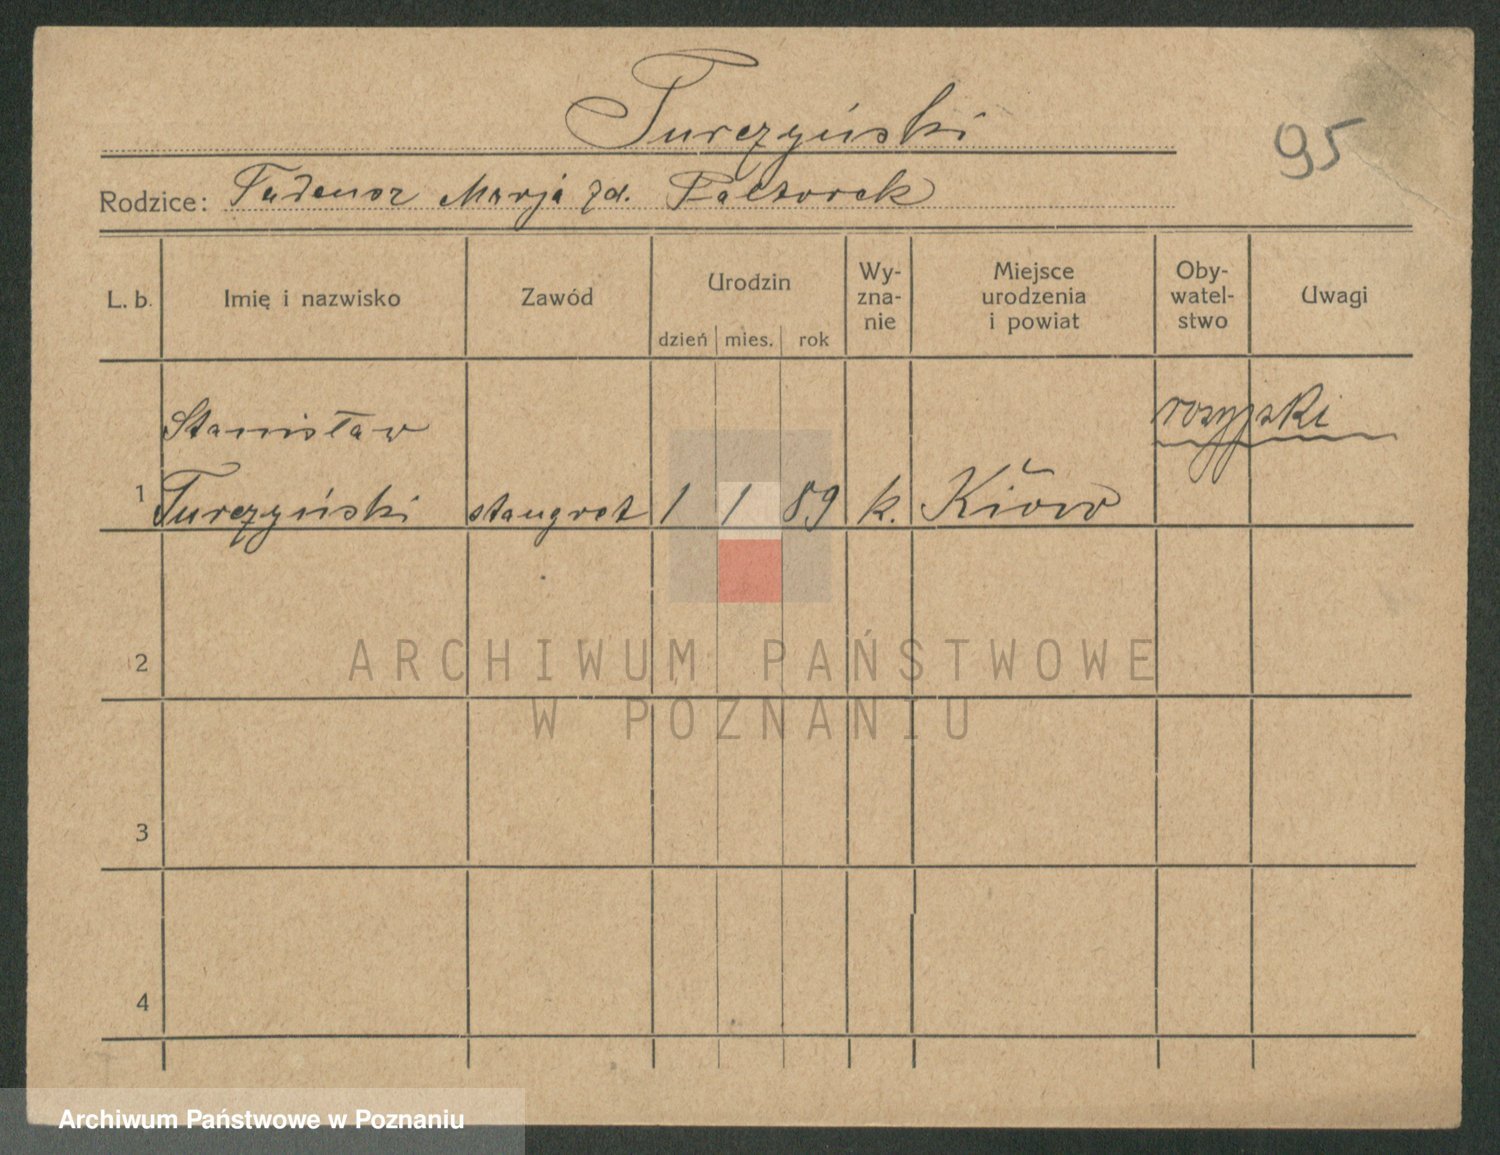 Turczyński
95
Rodzice: Tadeusz Marja zd. Paczorek
L. b. Imię i nazwisko Zawód Urodzin dzień mies. rok Wy-zna-nie Miejsce urodzenia i powiat Oby-watel-stwo Uwagi
Stanisław rosyjski
1 Turczyński stangret 1 1 89 k. Kiów
2
ARCHIWUM PAŃSTWOWE
W POZNANIU
3
4
Archiwum Państwowe w Poznaniu